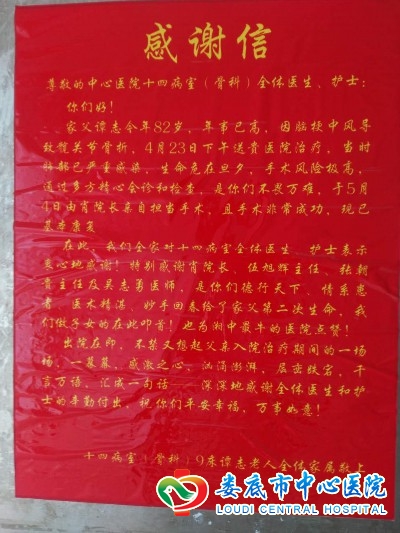 感谢信
尊敬的中心医院十四病室（骨科）全体医生、护士：
你们好！
家父谭志今年82岁，年事已高，因脑梗中风导
致髋关节骨折，4月23日下午送贵医院治疗，当时
肺部已严重感染，生命危在旦夕，手术风险极高，
通过多方精心会诊和检查，是你们不畏万难，于5月
日由肖院长亲自担当手术，且手术非常成功，现已
基本康复
在此，我们全家对十四病室全体医生、护士表示
衷心地感谢！特别感谢肖院长、伍旭辉主任、张朝
主任及吴志勇医师，是你们德行天下，情系患
者，医术精湛，妙手回春给了家父第二次生命，我
们做子女的在此叩首！也为湘中最牛的医院点赞！
出院在即，不禁又想起父亲入院治疗期间的一场
场，一幕幕，感激之心，汹涌澎湃，居密联宏，千
言万语，汇成一句话——深深地感谢全体医生和护
士的辛勤付出，祝你们平安幸福，万事如意！
十四病室（骨科）9床谭志老人全体家属敬上
娄底市中心医院
LOUDI CENTRAL HOSPITAL